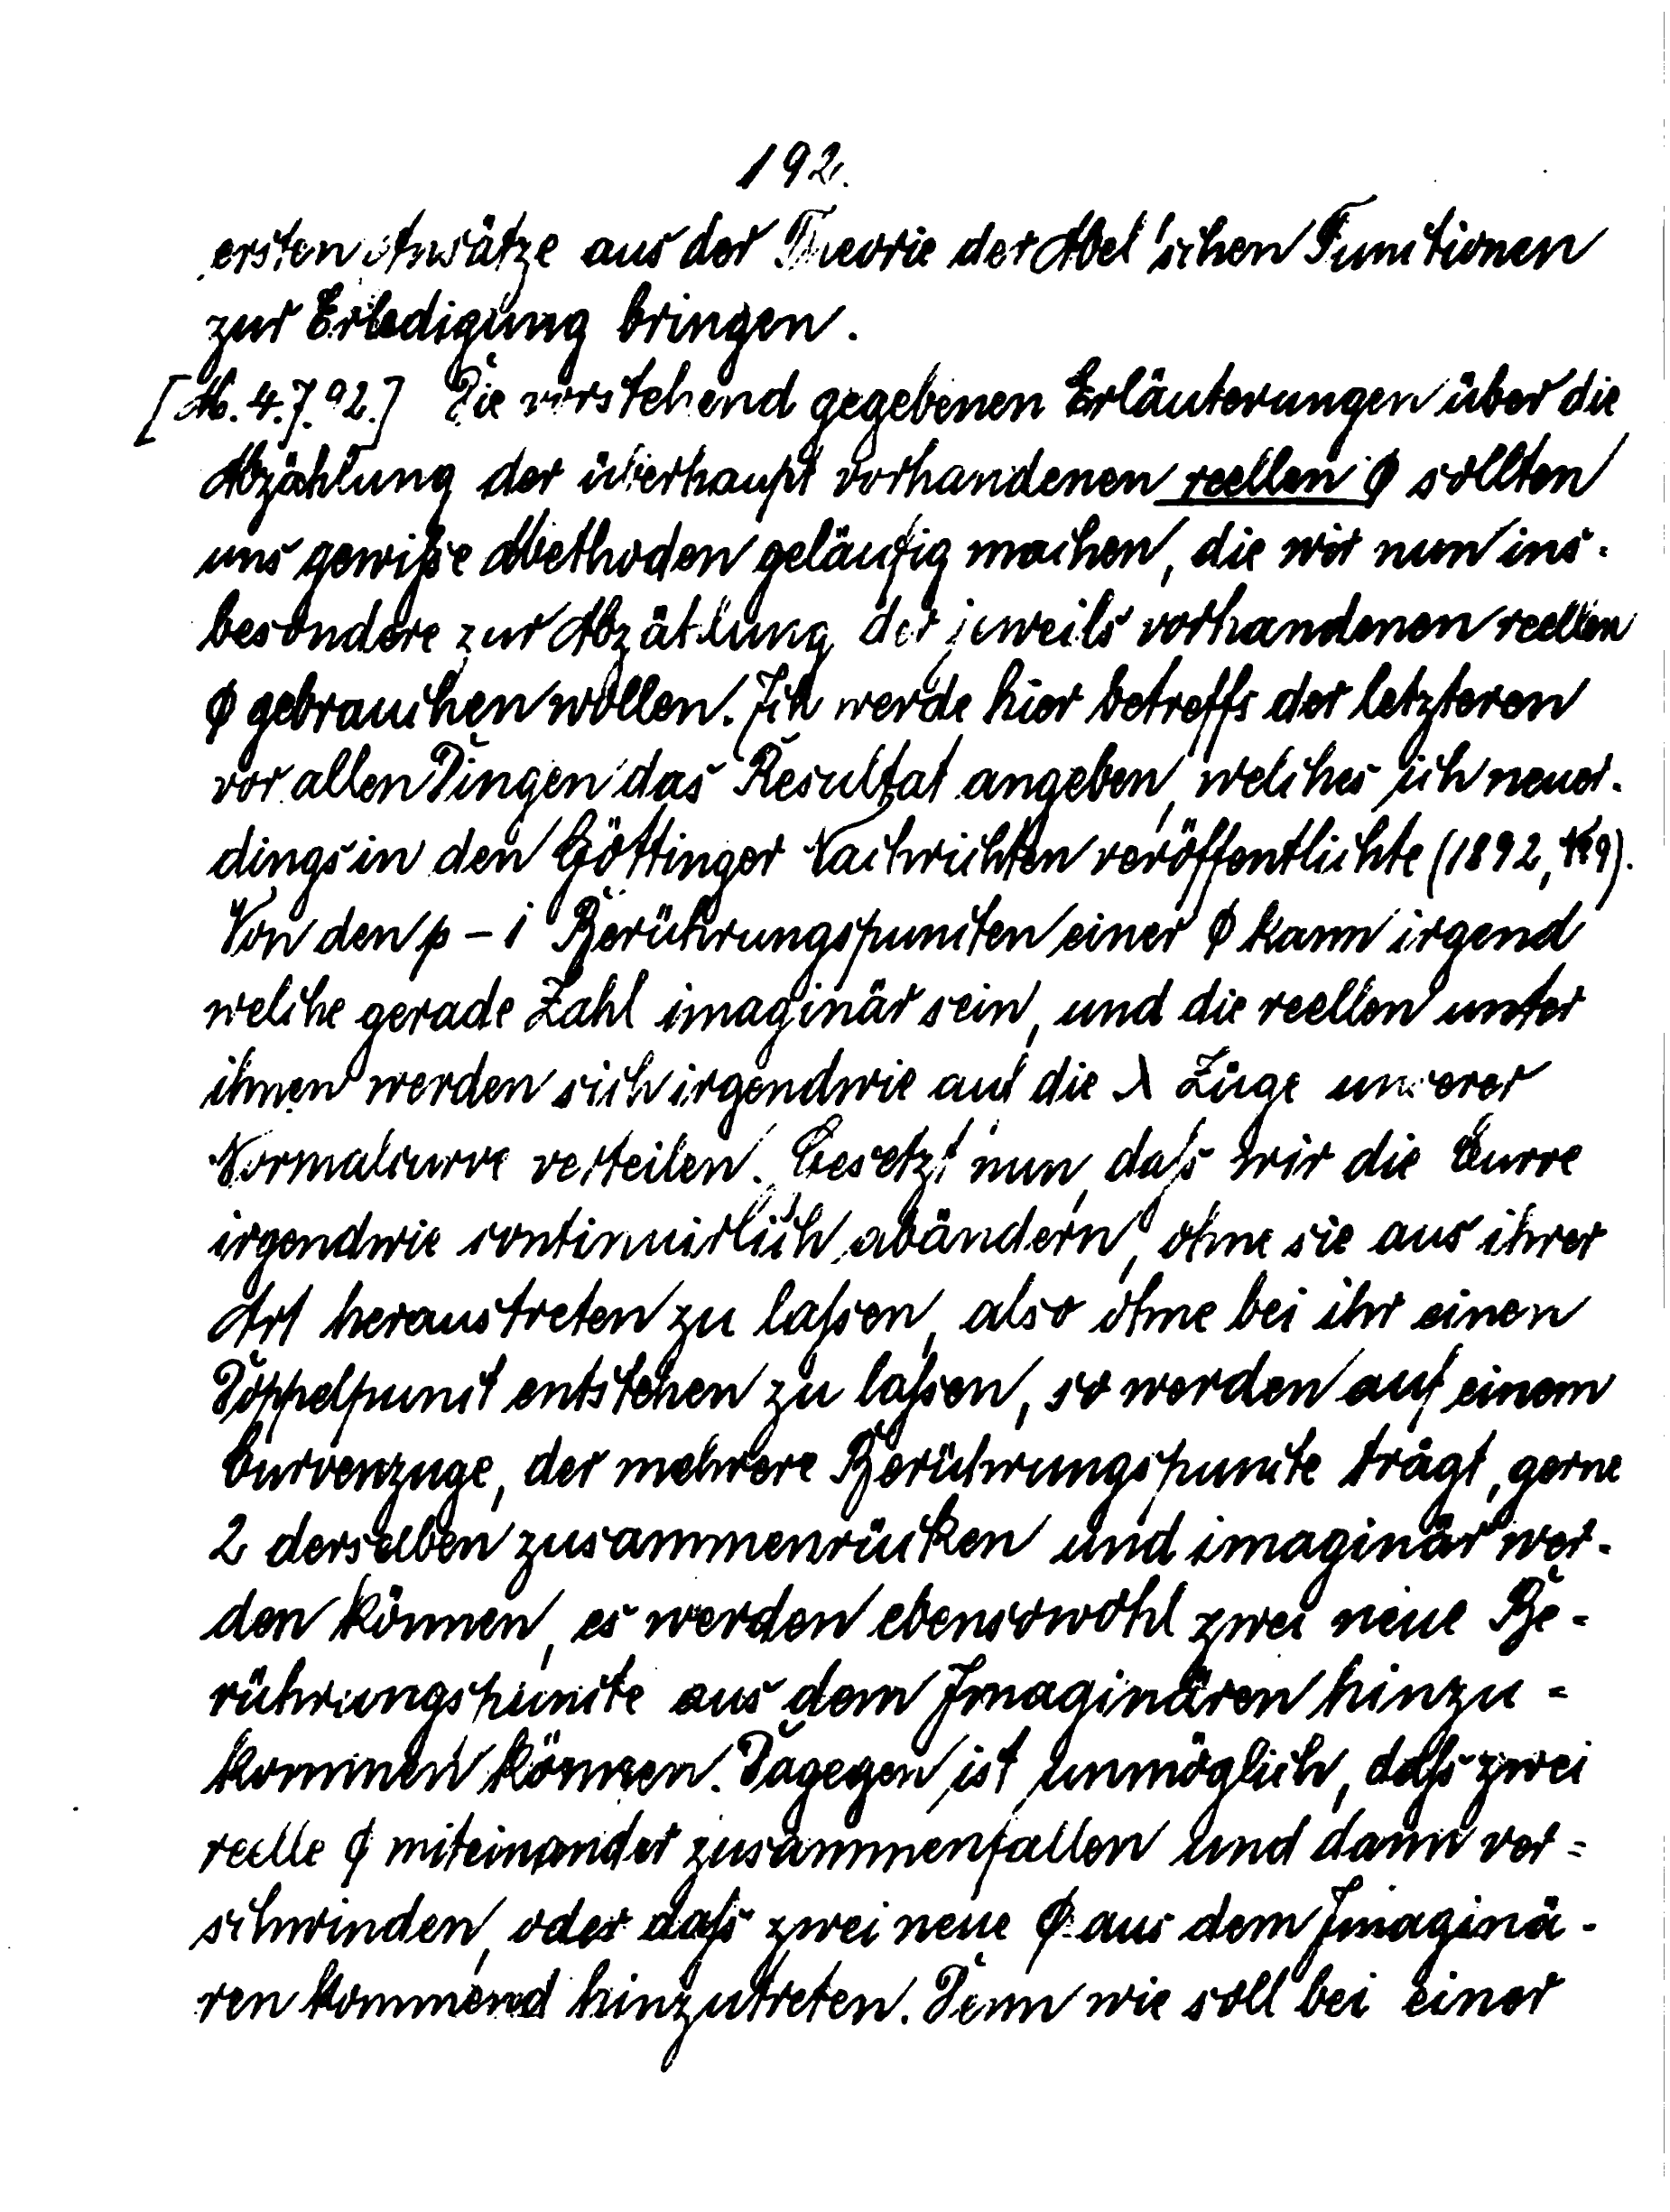 192.
ersten Ansätze aus der Theorie der Abel'schen Functionen
zur Erledigung bringen.
[M. 4.7.92.] Die vorstehend gegebenen Erläuterungen über die
Abzählung der überhaupt vorhandenen reellen φ sollten
uns gewiße Methoden geläufig machen, die wir nun ins-
besondere zur Abzählung der jeweils vorhandenen reellen
φ gebrauchen wollen. Ich werde hier betreffs der letzteren
vor allen Dingen das Resultat angeben, welches ich neuer-
dings in den Göttinger Nachrichten veröffentlichte (1892, №9).
Von den p-1 Berührungspuncten einer φ kann irgend
welche gerade Zahl imaginär sein, und die reellen unter
ihnen werden sich irgendwie auf die λ Züge unserer
Normalcurve verteilen. Gesetzt nun, daſs wir die Curve
irgendwie continuirlich abändern, ohne sie aus ihrer
Art heraustreten zu laſsen, also ohne bei ihr einen
Doppelpunct entstehen zu laſsen, so werden auf einem
Curvenzuge, der mehrere Berührungspuncte trägt, gerne
2 derselben zusammenrücken und imaginär wer-
den können, es werden ebensowohl zwei neue Be-
rührungspuncte aus dem Imaginären hinzu=
kommen können. Dagegen ist unmöglich, daſs zwei
reelle φ miteinander zusammenfallen und dann ver=
schwinden, oder daſs zwei neue φ aus dem Imaginä-
ren kommend hinzutreten. Denn wie soll bei einer